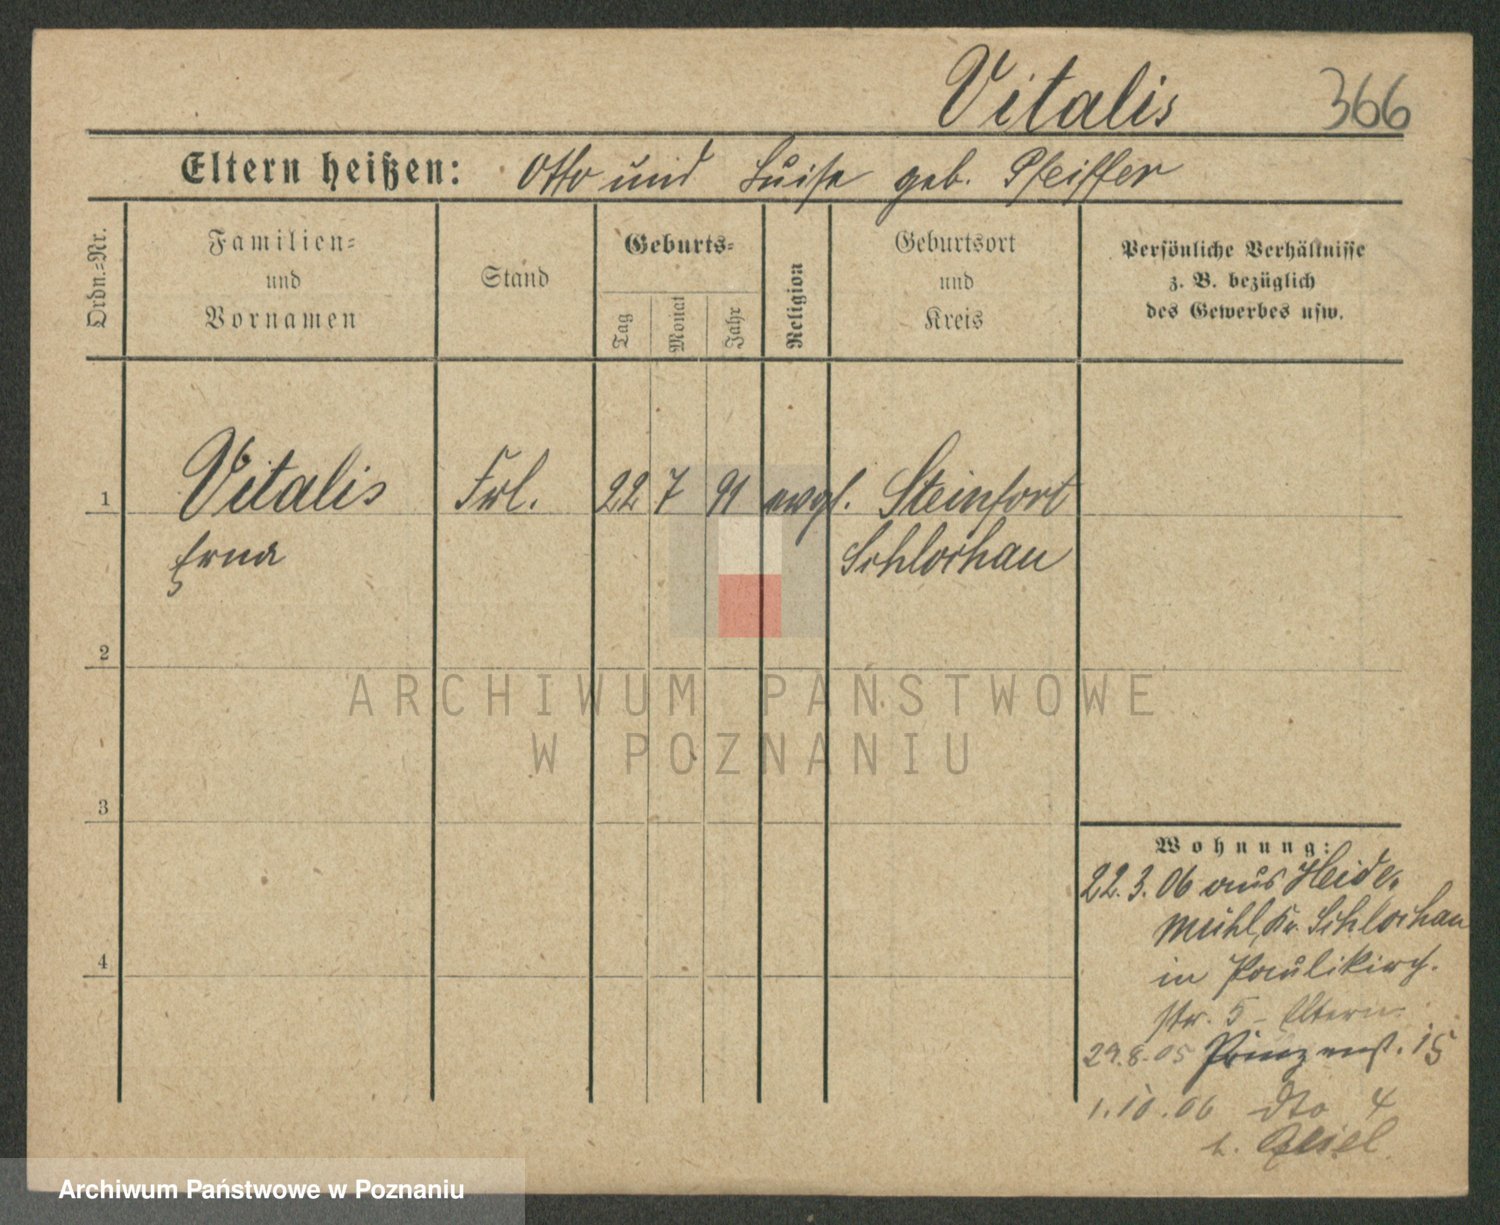 Vitalis 366
Eltern heißen: Otto und Luise geb. Pfeiffer
Ordn.=Nr.
Familien=
und
Vornamen
Stand
Geburts=
Tag
Monat
Jahr
Religion
Geburtsort
und
Kreis
Persönliche Verhältnisse
z. B. bezüglich
des Gewerbes usw.
1 Vitalis Frl. 22 7 91 evgl. Steinfort
Erna Schlochau
2
3
4
Wohnung:
22.3.06 aus Heide-
mühl, Kr. Schlochau
in Paulikirch-
str. 5 - Eltern
29.8.05 Prinzenst. 15
1.10.06 dto 4
b.
ARCHIWUM PAŃSTWOWE
W POZNANIU
Archiwum Państwowe w Poznaniu